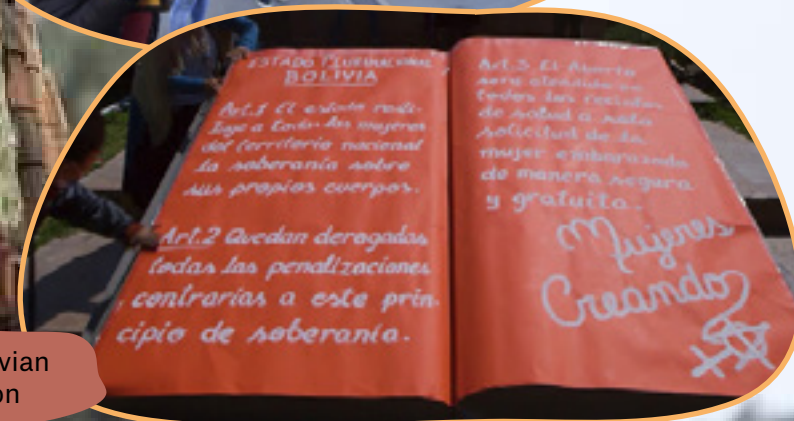 ESTADO PLURINACIONAL
BOLIVIA
Art.1 El estado resti-
tuye a todas las mujeres
del territorio nacional
la soberanía sobre
sus propios cuerpos.
Art.2 Quedan derogadas
todas las penalizaciones
contrarias a este prin-
cipio de soberanía.
Art.3 El Aborto
sera atendido en
todos los recintos
de salud a sola
solicitud de la
mujer embarazada
de manera segura
y gratuita.
Mujeres
Creando
vian
on